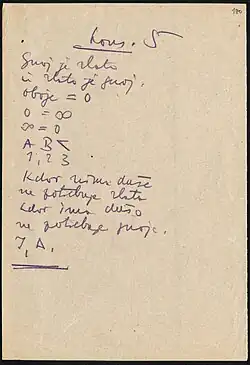 Kons. 5
Gnoj je zlato
in zlato je gnoj.
oboje = 0
0 = ∞
∞ = 0
A B <
1, 2 3
Kdor nima duše
ne potrebuje zlata
kdor ima dušo
ne potrebuje gnoja.
I, A.